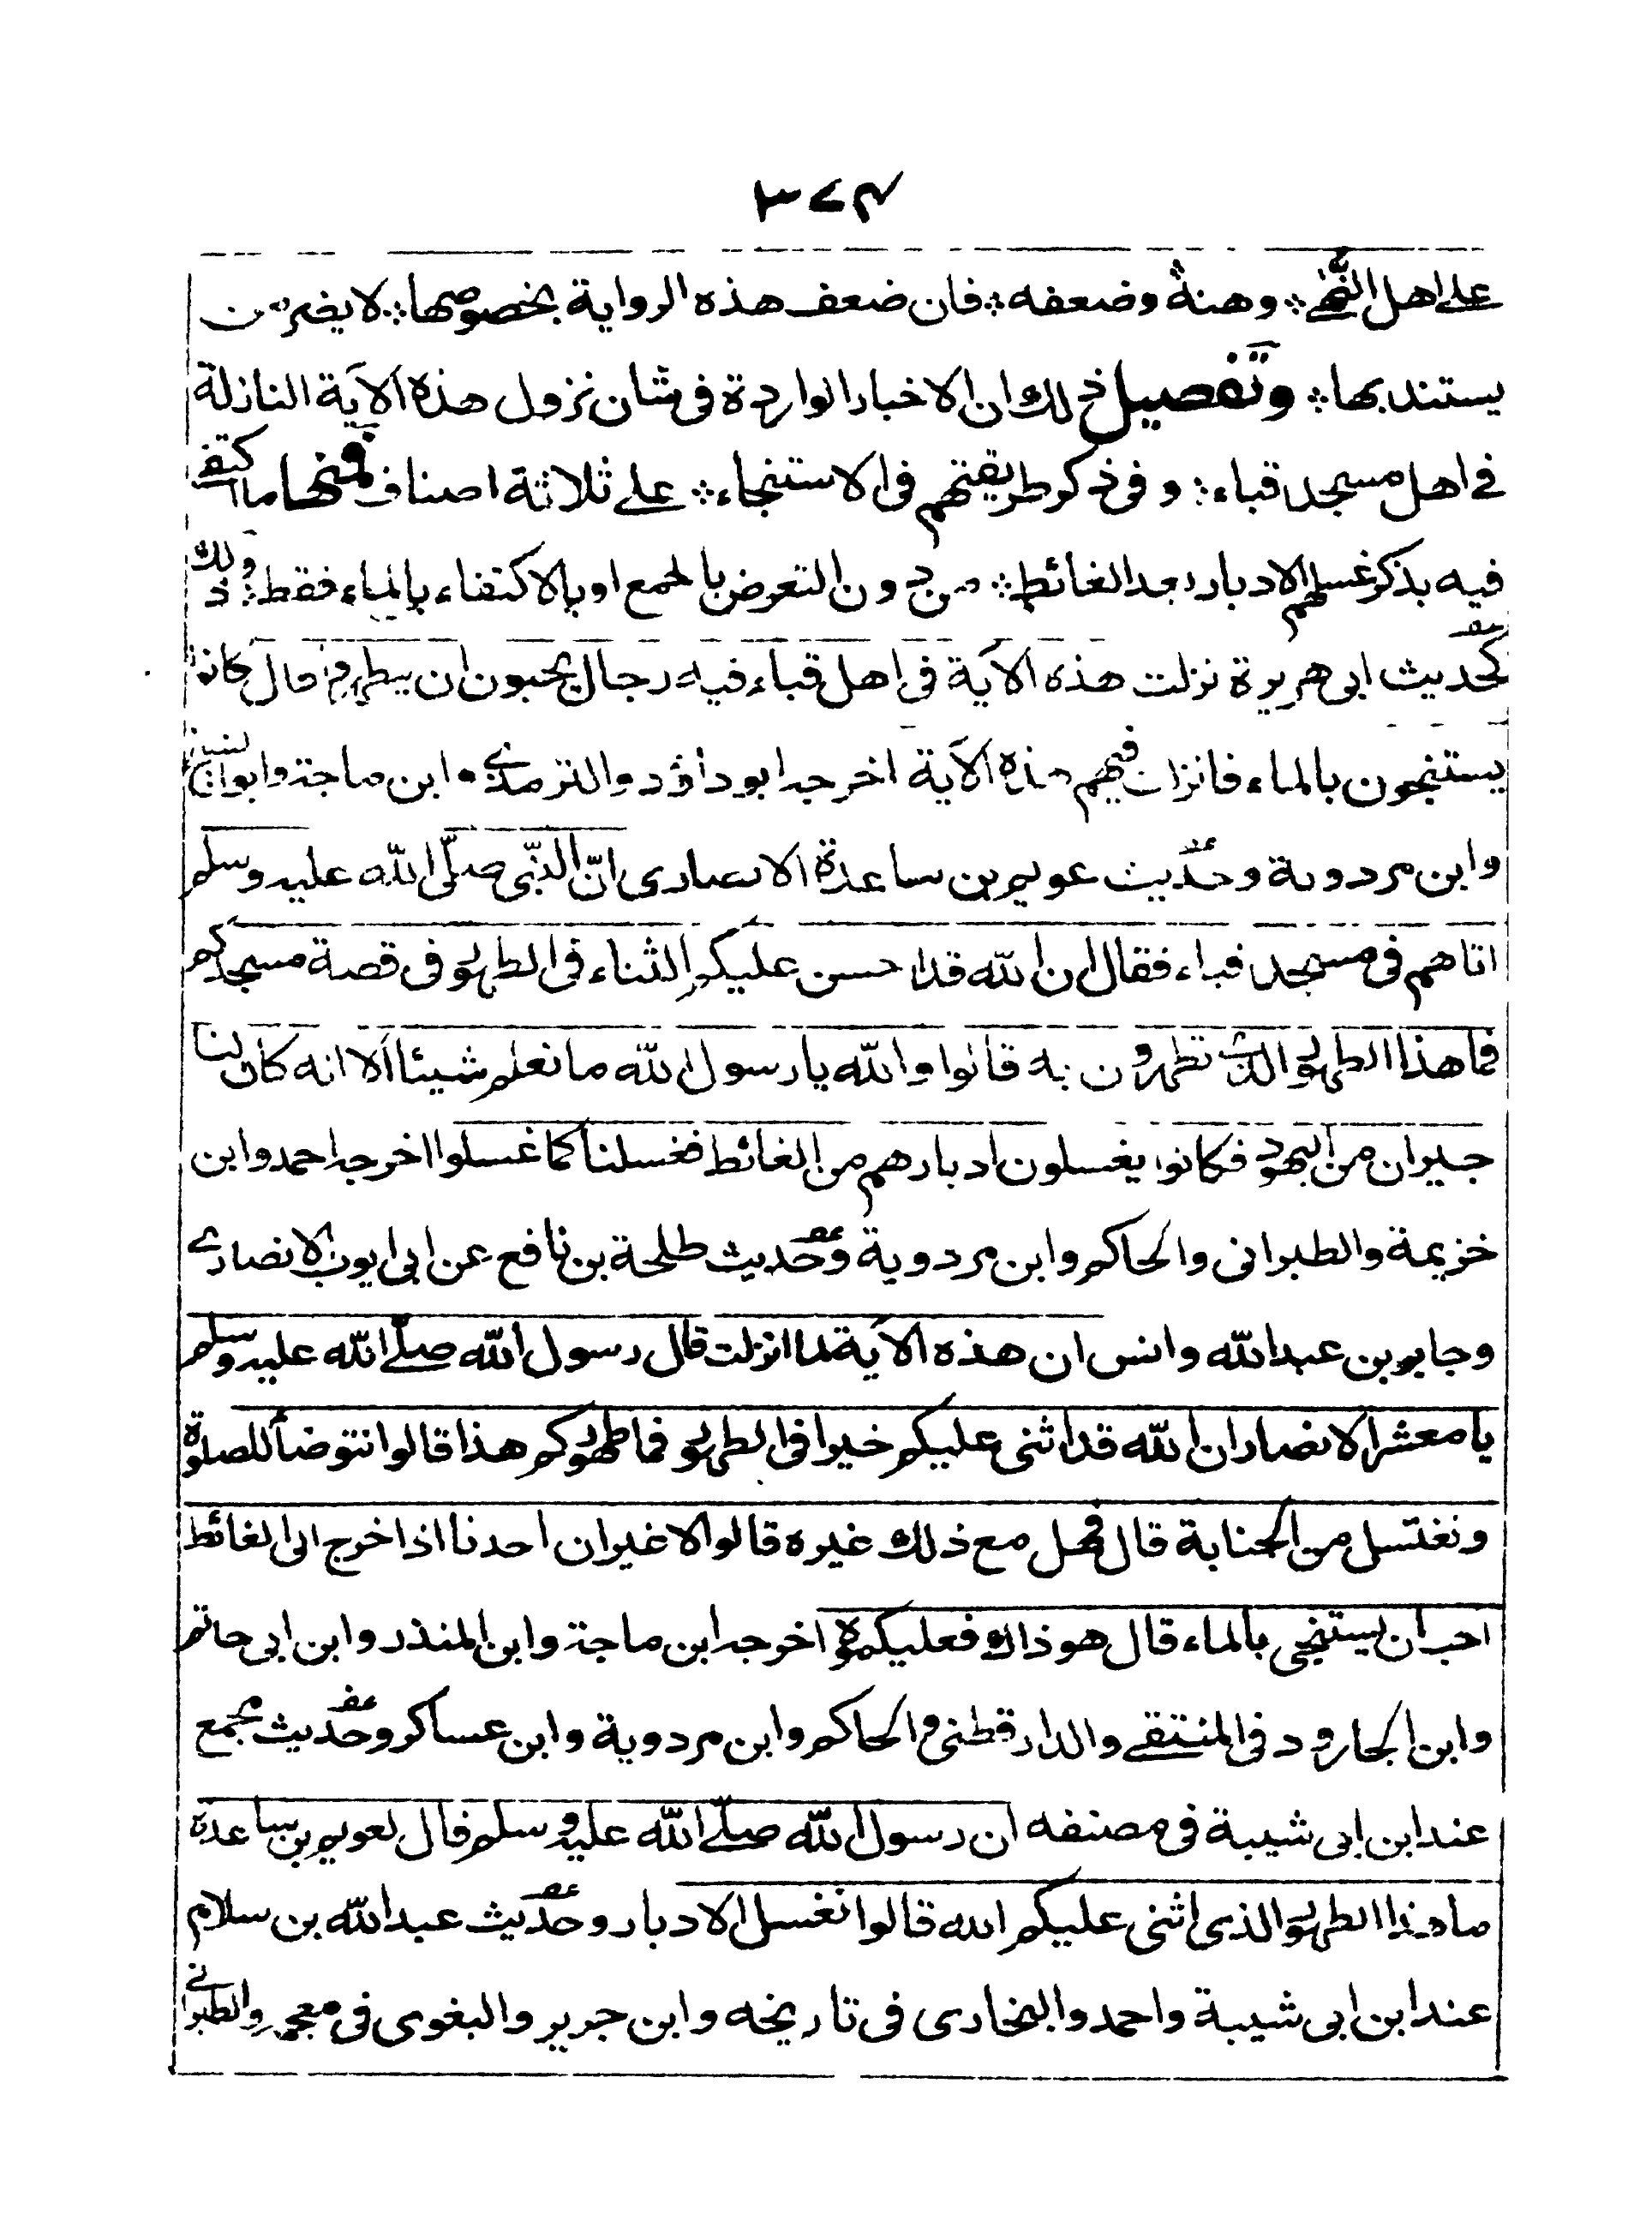 ٣٧٤
على اهل النهى ؞ وهنه وضعفه ؞ فان ضعف هذه الرواية بخصوصها ؞ لا يضر من
يستند بها ؞ وتفصيل ذلك ان الاخبار الواردة فى شان نزول هذه الآية النازلة
فى اهل مسجد قباء ؞ و فى ذكر طريقتهم فى الاستنجاء ؞ على ثلاثة اصناف فمنها ما اكتفى
فيه بذكر غسلهم الادبار بعد الغائط ؞ من دون التعرض بالجمع او بالاكتفاء بالماء فقط ؞ وذلك
كحديث ابى هريرة نزلت هذه الآية فى اهل قباء فيه رجال يحبون ان يتطهروا قال كانوا
يستنجون بالماء فانزلت فيهم هذه الآية اخرجه ابو داؤد والترمذى وابن ماجة وابو الشيخ
وابن مردوية وحديث عويم بن ساعدة الانصارى انّ النّبى صلّى اللّه عليه وسلم
اتاهم فى مسجد قباء فقال ان اللّه قد احسن عليكم الثناء فى الطهور فى قصة مسجدكم
فما هذا الطهور الذى تطهرون به قالوا واللّه يا رسول اللّه ما نعلم شيئا الا انه كان لنا
جيران من اليهود فكانوا يغسلون ادبارهم من الغائط فغسلنا كما غسلوا اخرجه احمد وابن
خزيمة والطبرانى والحاكم وابن مردوية وحديث طلحة بن نافع عن ابى ايوب الانصارى
وجابر بن عبد اللّه وانس ان هذه الآية لما انزلت قال رسول اللّه صلّى اللّه عليه وسلم
يا معشر الانصار ان اللّه قد اثنى عليكم خيرا فى الطهور فما طهوركم هذا قالوا نتوضأ للصلوة
ونغتسل من الجنابة قال فهل مع ذلك غيره قالوا لا غير ان احدنا اذا خرج الى الغائط
احب ان يستنجى بالماء قال هو ذاك فعليكموه اخرجه ابن ماجة وابن المنذر وابن ابى حاتم
وابن الجارود فى المنتقى والدارقطنى والحاكم وابن مردوية وابن عساكر وحديث مجمع
عند ابن ابى شيبة فى مصنفه ان رسول اللّه صلّى اللّه عليه وسلم قال لعويم بن ساعدة
ما هذا الطهور الذى اثنى عليكم الله قالوا نغسل الادبار وحديث عبد اللّه بن سلام
عند ابن ابى شيبة واحمد والبخارى فى تاريخه وابن جرير والبغوى فى معجمه والطبرانى